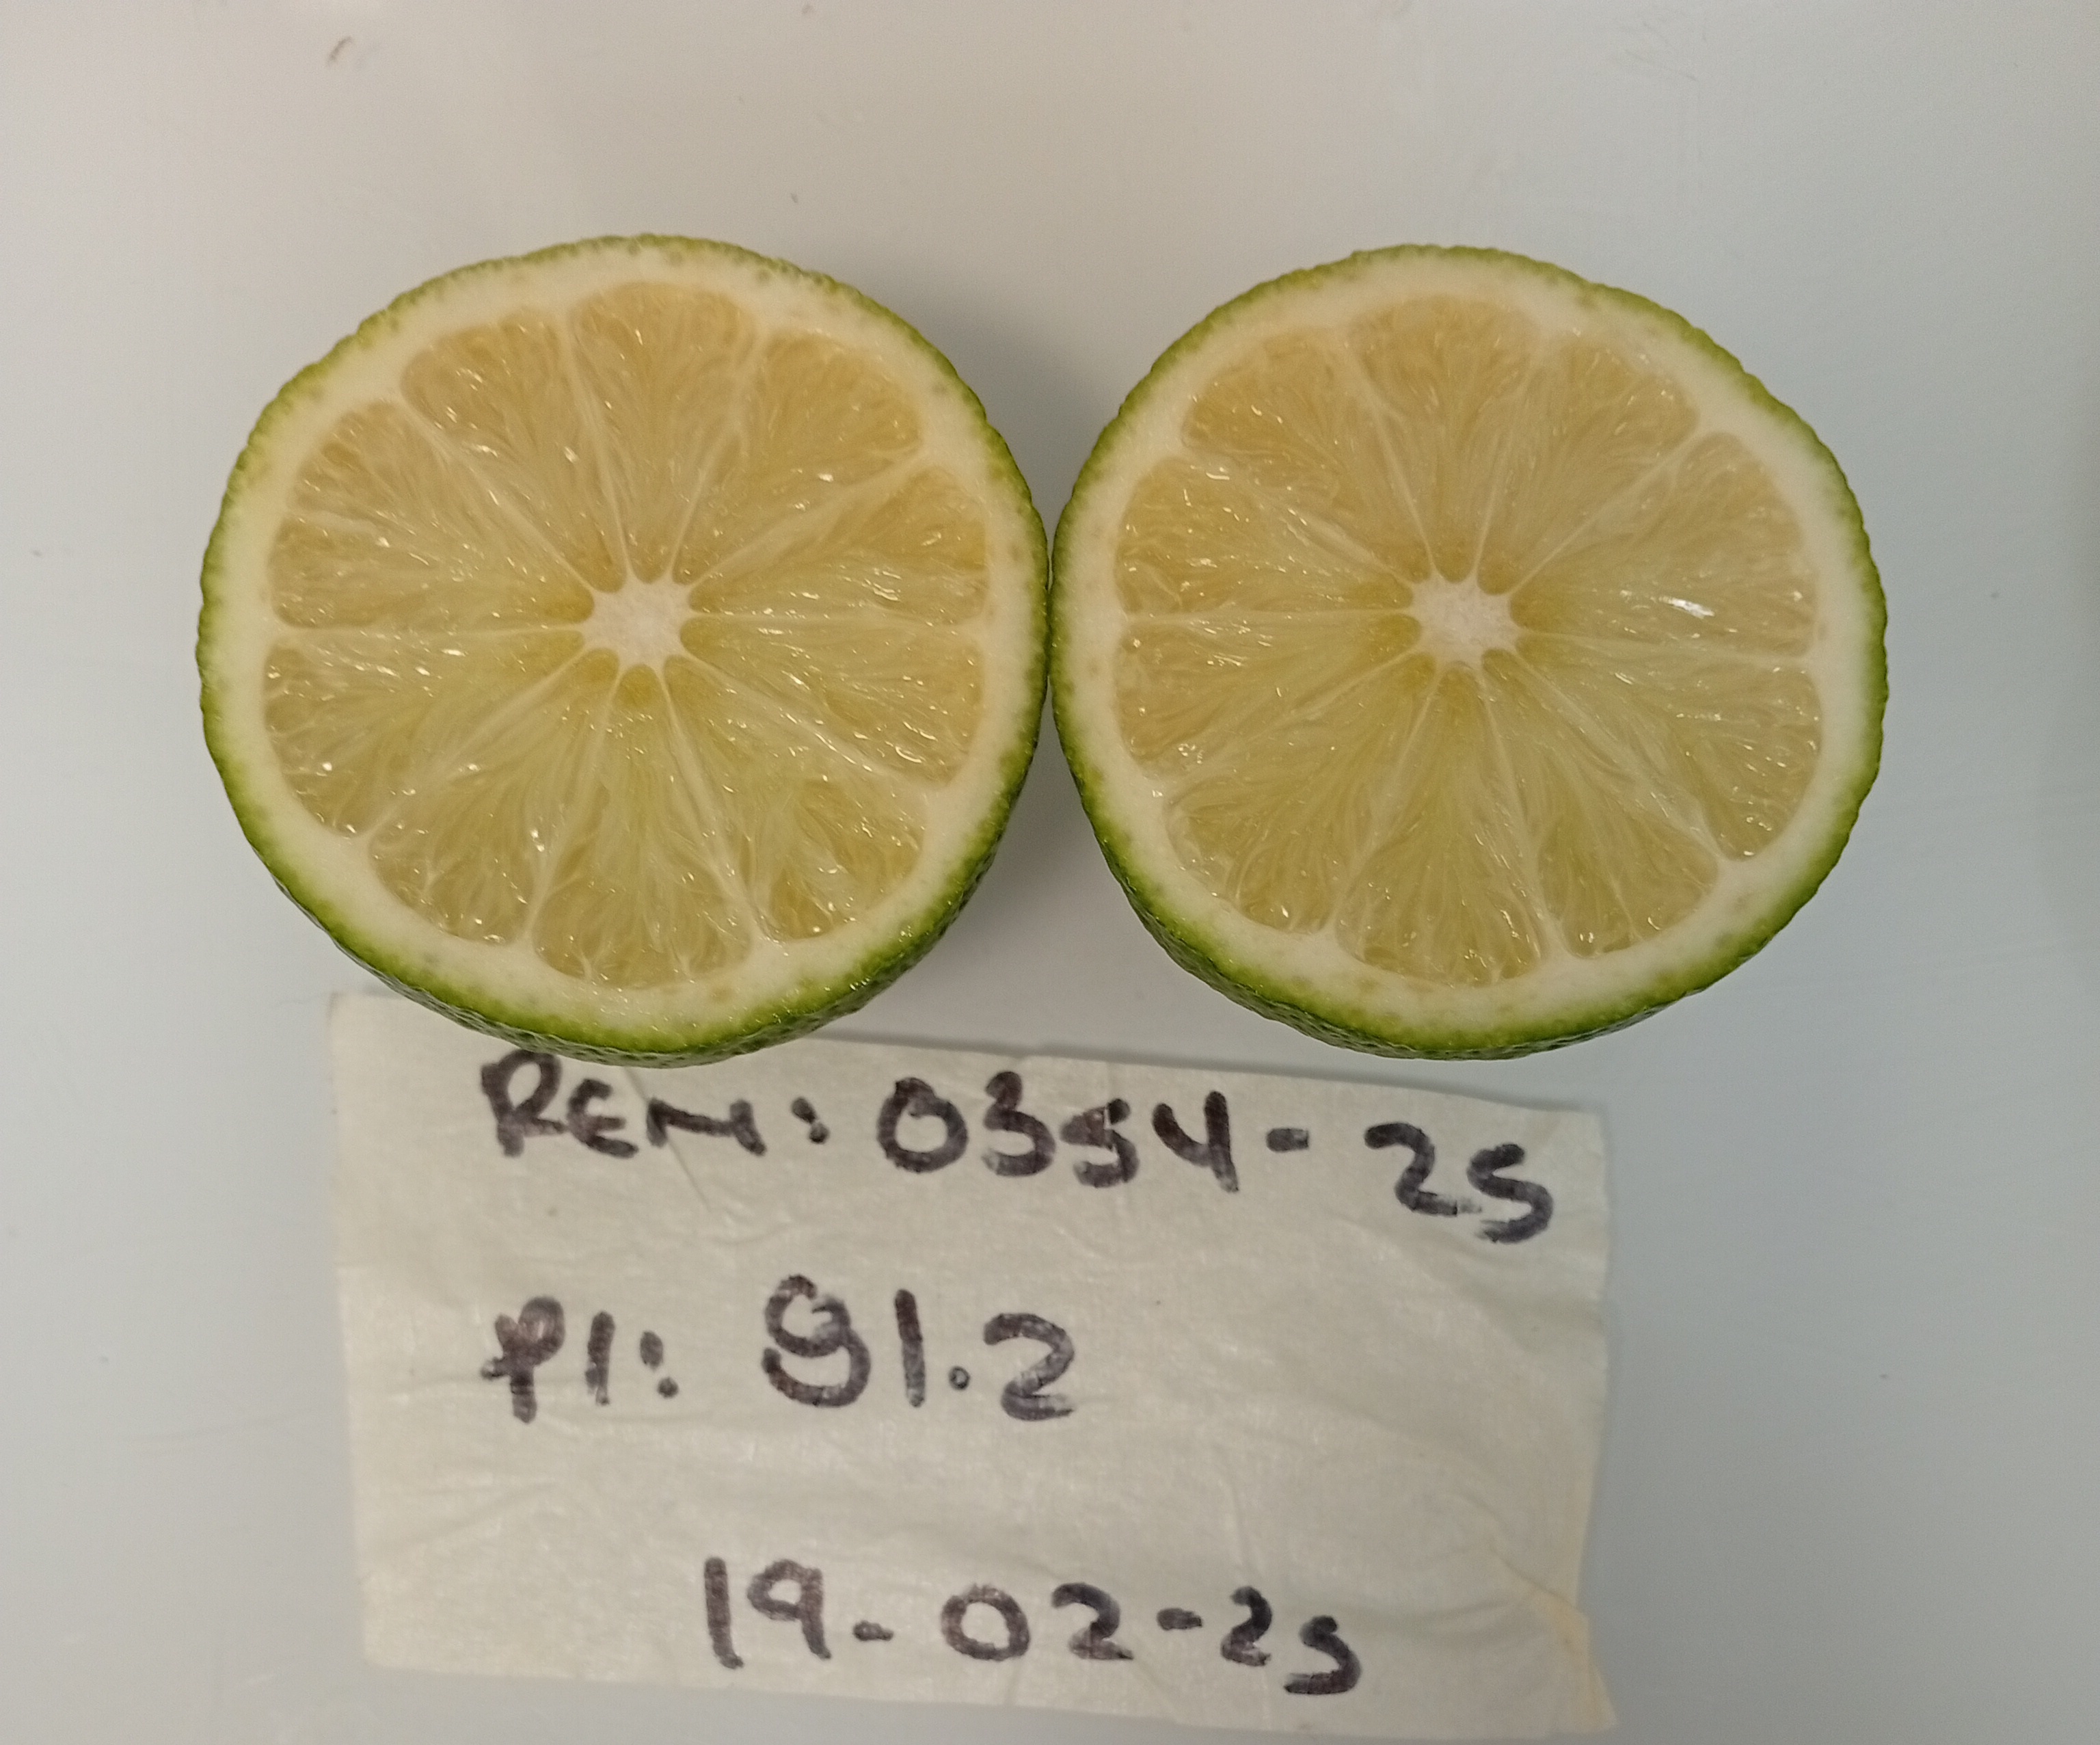 REM: 0354-25
PI: 81.2
19-02-25